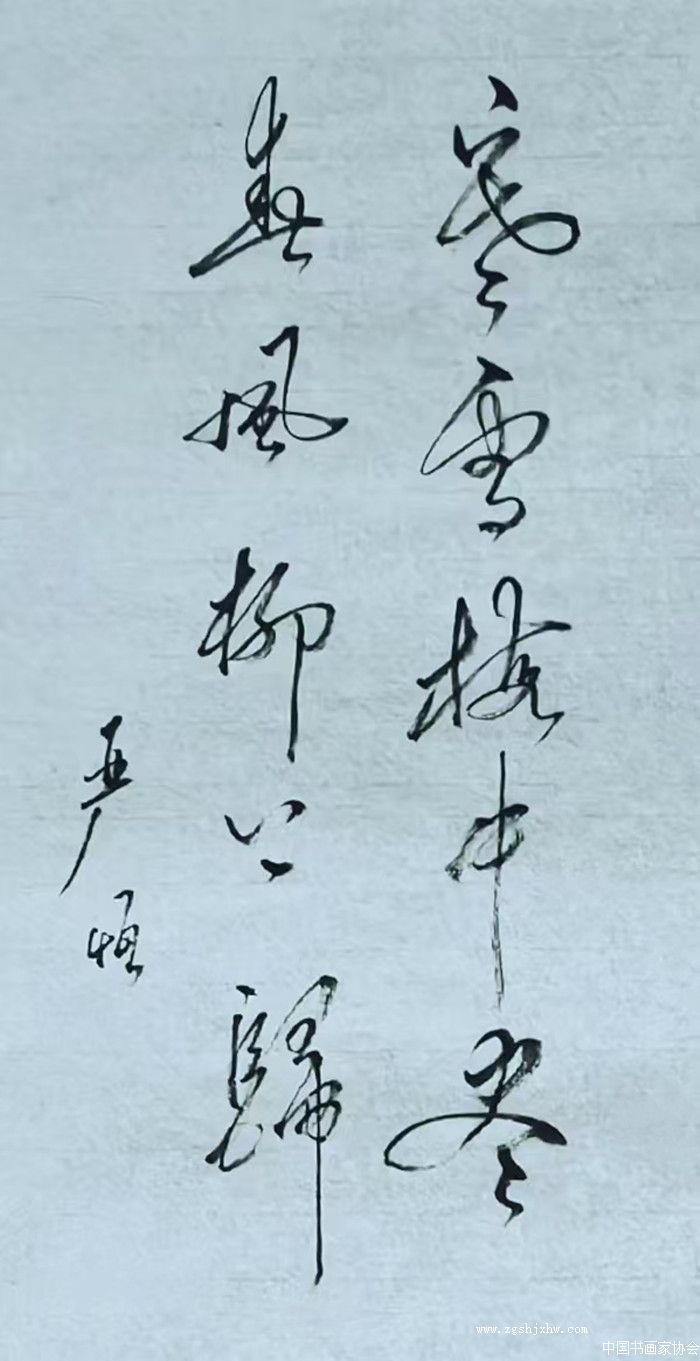 寒雪梅中尽
春風柳上歸
严恒
www.zgshjxhw.com
中国书画家协会